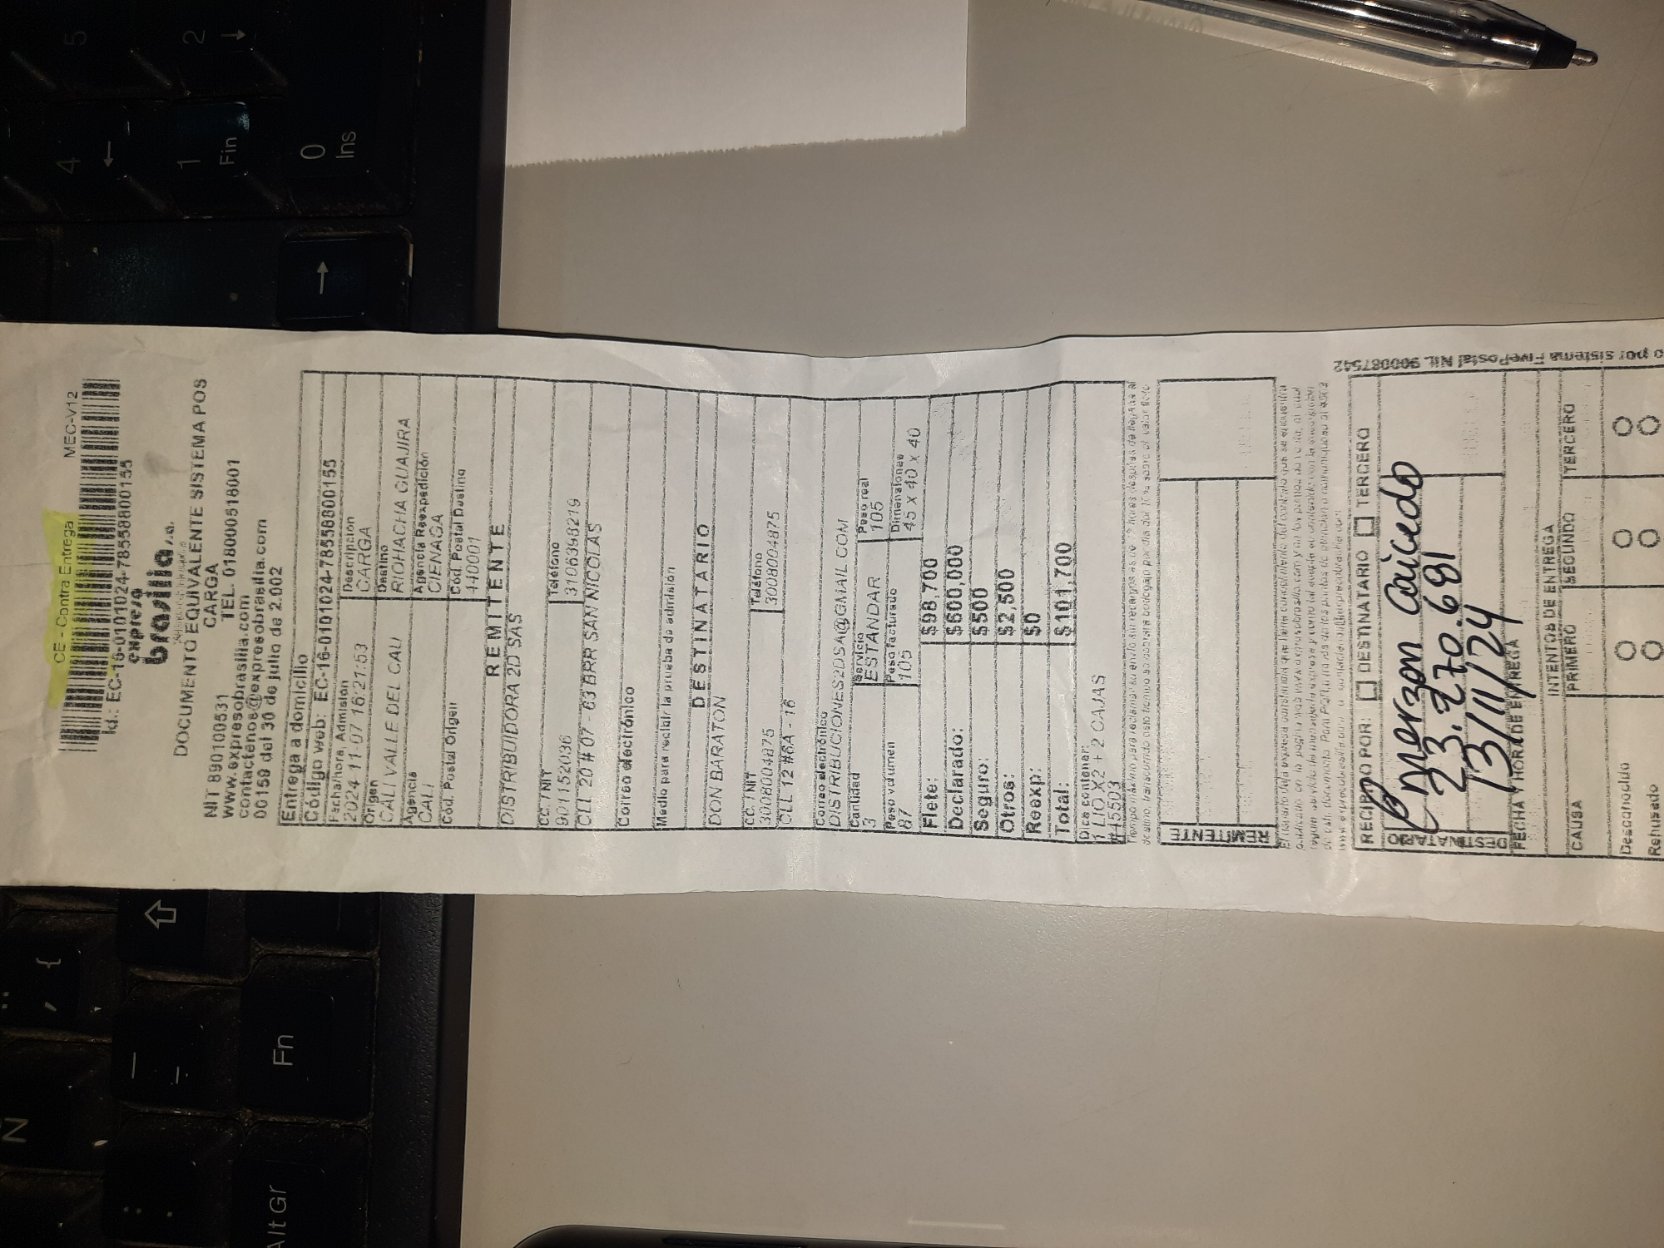 CE - Contra Entrega MEC-V12
Id.: EC-16-0101024-78558800155
expreso
brasilia s.a.
DOCUMENTO EQUIVALENTE SISTEMA POS
CARGA
NIT 890100531 TEL. 018000518001
www.expresobrasilia.com
contactenos@expresobrasilia.com
00159 del 30 de julio de 2.002
Entrega a domicilio
Código web: EC-16-0101024-78558800155
Fecha/hora, Admisión Descripción
2024-11-07 16:21:53 CARGA
Origen Destino
CALI VALLE DEL CALI RIOHACHA GUAJIRA
Agencia Agencia Reexpedición
CALI CIENAGA
Cód. Postal Origen Cód. Postal Destino
440001
REMITENTE
DISTRIBUIDORA 2D SAS
CC. / NIT Teléfono
901152036 3106398219
CLL 20 # 07 - 63 BRR SAN NICOLAS
Correo electrónico
Medio para recibir la prueba de admisión
DESTINATARIO
DON BARATON
CC. / NIT Teléfono
3008004875 3008004875
CLL 12 #6A - 16
Correo electrónico
DISTRIBUCIONES2DSA@GMAIL.COM
Cantidad Servicio Peso real
3 ESTANDAR 105
Peso volumen Peso facturado Dimensiones
87 105 45 X 40 X 40
Flete: $98,700
Declarado: $600,000
Seguro: $500
Otros: $2,500
Reexp: $0
Total: $101,700
Dice contener:
1 LIO X2 + 2 CAJAS
#45503
REMITENTE
RECIBIDO POR: DESTINATARIO TERCERO
DESTINATARIO
merzon caicedo
73.270.681
13/11/24
FECHA Y HORA DE ENTREGA
INTENTOS DE ENTREGA
CAUSA PRIMERO SEGUNDO TERCERO
Desconocido
Rehusado
o por sistema FivePostal Nit. 9000087542
5
2
↓
4
←
1
Fin
0
Ins
→
Fn
AltGr
N